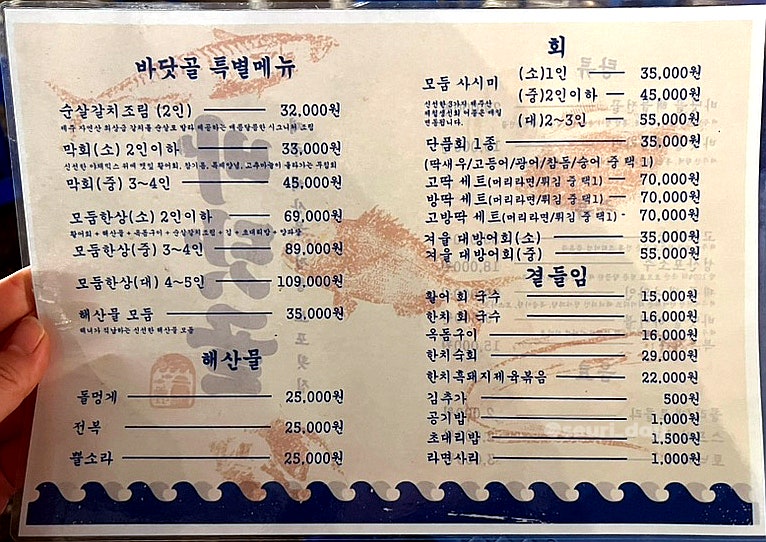 바닷골 특별메뉴
순살갈치조림 (2인) 32,000원
제주 자연산 최상급 갈치를 순살로 발라 제공하는 매콤달콤한 시그니처 조림
막회(소) 2인이하 33,000원
신선한 야채믹스 위에 깻잎 활어회, 참기름, 통깨양념, 고추마늘이 올라가는 무침회
막회(중) 3~4인 45,000원
모둠한상(소) 2인이하 69,000원
활어회 + 해산물 + 옥돔구이 + 순살갈치조림 + 김 + 초대리밥 + 양파장
모둠한상(중) 3~4인 89,000원
모둠한상(대) 4~5인 109,000원
해산물 모둠 35,000원
해녀가 직납하는 신선한 해산물 모둠
해산물
돌멍게 25,000원
전복 25,000원
뿔소라 25,000원
회
모둠 사시미 (소)1인 35,000원
(중)2인이하 45,000원
(대)2~3인 55,000원
신선한 3가지 제주산
제철생선회 어종은 매일
변동됩니다.
단품회 1종 35,000원
(딱새우/고등어/광어/참돔/숭어 중 택 1)
고딱 세트(머리라면/튀김 중 택1) 70,000원
방딱 세트(머리라면/튀김 중 택1) 70,000원
고방딱 세트(머리라면/튀김 중 택1) 70,000원
겨울 대방어회(소) 35,000원
겨울 대방어회(중) 55,000원
곁들임
활어 회 국수 15,000원
한치 회 국수 16,000원
옥돔구이 16,000원
한치숙회 29,000원
한치흑돼지제육볶음 22,000원
김추가 500원
공기밥 1,000원
초대리밥 1,500원
라면사리 1,000원